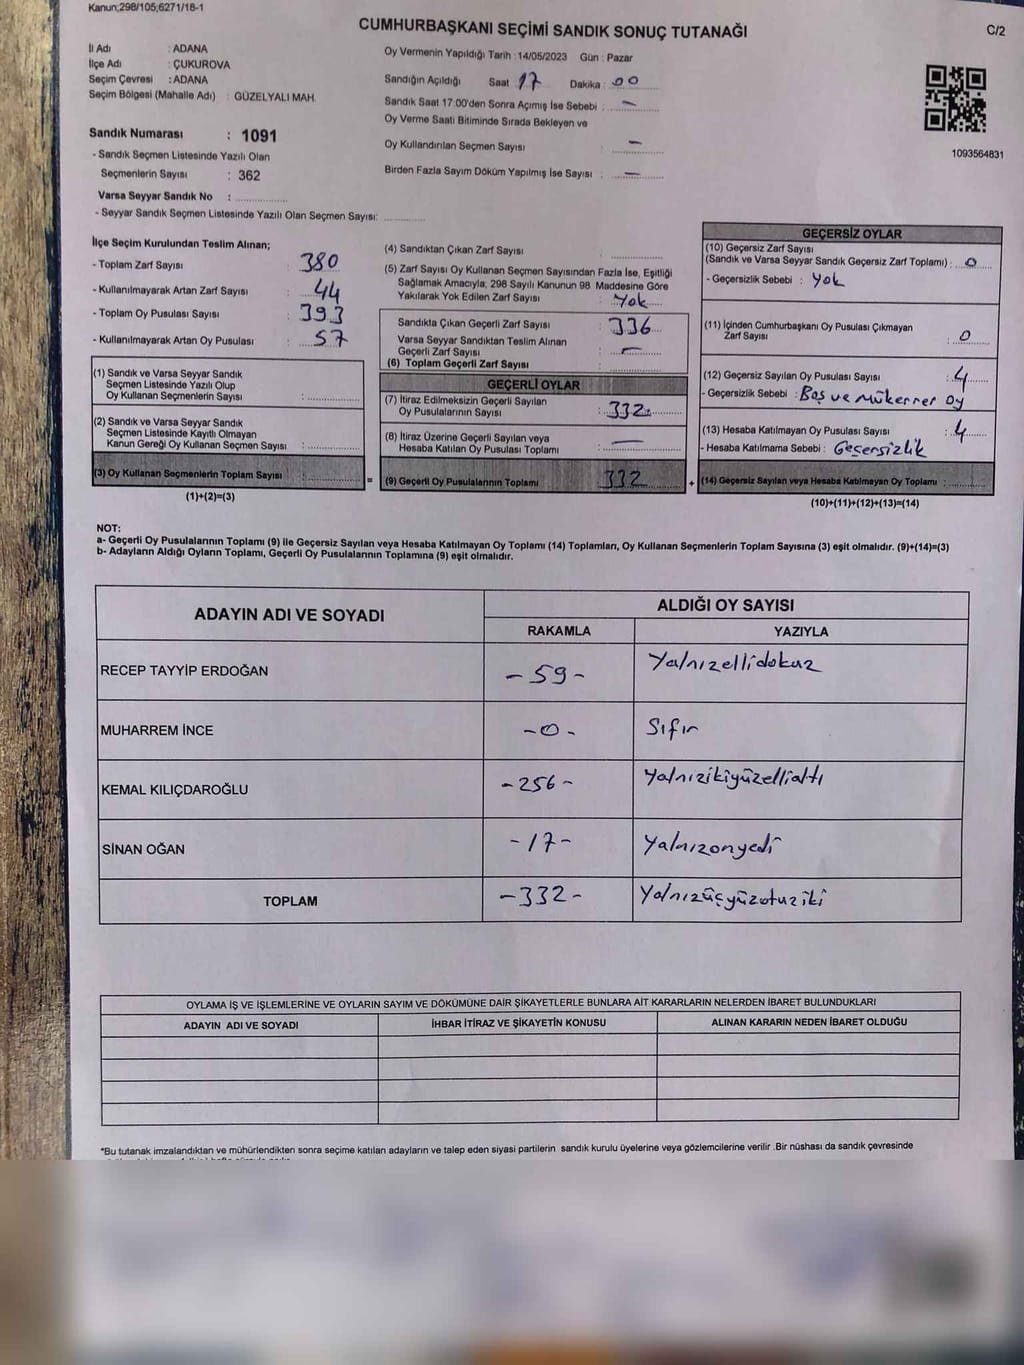 Kanun;298/105;6271/18-1
CUMHURBAŞKANI SEÇİMİ SANDIK SONUÇ TUTANAĞI
C/2
İl Adı : ADANA
İlçe Adı : ÇUKUROVA
Seçim Çevresi : ADANA
Seçim Bölgesi (Mahalle Adı) : GÜZELYALI MAH.
Sandık Numarası : 1091
- Sandık Seçmen Listesinde Yazılı Olan
Seçmenlerin Sayısı : 362
Varsa Seyyar Sandık No : ................
- Seyyar Sandık Seçmen Listesinde Yazılı Olan Seçmen Sayısı: ............
Oy Vermenin Yapıldığı Tarih : 14/05/2023 Gün : Pazar
Sandığın Açıldığı Saat 17 Dakika : 00
Sandık Saat 17:00'den Sonra Açımış İse Sebebi : —
Oy Verme Saati Bitiminde Sırada Bekleyen ve
Oy Kullandırılan Seçmen Sayısı : —
Birden Fazla Sayım Döküm Yapılmış İse Sayısı : —
1093564831
İlçe Seçim Kurulundan Teslim Alınan;
- Toplam Zarf Sayısı : 380
- Kullanılmayarak Artan Zarf Sayısı : 44
- Toplam Oy Pusulası Sayısı : 393
- Kullanılmayarak Artan Oy Pusulası : 57
(1) Sandık ve Varsa Seyyar Sandık
Seçmen Listesinde Yazılı Olup
Oy Kullanan Seçmenlerin Sayısı : ............
(2) Sandık ve Varsa Seyyar Sandık
Seçmen Listesinde Kayıtlı Olmayan
Kanun Gereği Oy Kullanan Seçmen Sayısı : ............
(3) Oy Kullanan Seçmenlerin Toplam Sayısı : ............
(1)+(2)=(3)
=
(4) Sandıktan Çıkan Zarf Sayısı : ............
(5) Zarf Sayısı Oy Kullanan Seçmen Sayısından Fazla İse, Eşitliği
Sağlamak Amacıyla; 298 Sayılı Kanunun 98 Maddesine Göre
Yakılarak Yok Edilen Zarf Sayısı : Yok
Sandıkta Çıkan Geçerli Zarf Sayısı : 336
Varsa Seyyar Sandıktan Teslim Alınan
Geçerli Zarf Sayısı : —
(6) Toplam Geçerli Zarf Sayısı
GEÇERLİ OYLAR
(7) İtiraz Edilmeksizin Geçerli Sayılan
Oy Pusulalarının Sayısı : 332
(8) İtiraz Üzerine Geçerli Sayılan veya
Hesaba Katılan Oy Pusulası Toplamı : —
(9) Geçerli Oy Pusulalarının Toplamı 332
+
GEÇERSİZ OYLAR
(10) Geçersiz Zarf Sayısı
(Sandık ve Varsa Seyyar Sandık Geçersiz Zarf Toplamı) : 0
- Geçersizlik Sebebi : Yok
(11) İçinden Cumhurbaşkanı Oy Pusulası Çıkmayan
Zarf Sayısı : 0
(12) Geçersiz Sayılan Oy Pusulası Sayısı : 4
- Geçersizlik Sebebi : Boş ve Mükerrer Oy
(13) Hesaba Katılmayan Oy Pusulası Sayısı : 4
- Hesaba Katılmama Sebebi : Geçersizlik
(14) Geçersiz Sayılan veya Hesaba Katılmayan Oy Toplamı : ............
(10)+(11)+(12)+(13)=(14)
NOT:
a- Geçerli Oy Pusulalarının Toplamı (9) ile Geçersiz Sayılan veya Hesaba Katılmayan Oy Toplamı (14) Toplamları, Oy Kullanan Seçmenlerin Toplam Sayısına (3) eşit olmalıdır. (9)+(14)=(3)
b- Adayların Aldığı Oyların Toplamı, Geçerli Oy Pusulalarının Toplamına (9) eşit olmalıdır.
ADAYIN ADI VE SOYADI
ALDIĞI OY SAYISI
RAKAMLA YAZIYLA
RECEP TAYYİP ERDOĞAN -59- Yalnızellidokuz
MUHARREM İNCE -0- Sıfır
KEMAL KILIÇDAROĞLU -256- Yalnızikiyüzellialtı
SİNAN OĞAN -17- Yalnızonyedi
TOPLAM -332- Yalnızüçyüzotuziki
OYLAMA İŞ VE İŞLEMLERİNE VE OYLARIN SAYIM VE DÖKÜMÜNE DAİR ŞİKAYETLERLE BUNLARA AİT KARARLARIN NELERDEN İBARET BULUNDUKLARI
ADAYIN ADI VE SOYADI İHBAR İTİRAZ VE ŞİKAYETİN KONUSU ALINAN KARARIN NEDEN İBARET OLDUĞU
*Bu tutanak imzalandıktan ve mühürlendikten sonra seçime katılan adayların ve talep eden siyasi partilerin sandık kurulu üyelerine veya gözlemcilerine verilir .Bir nüshası da sandık çevresinde